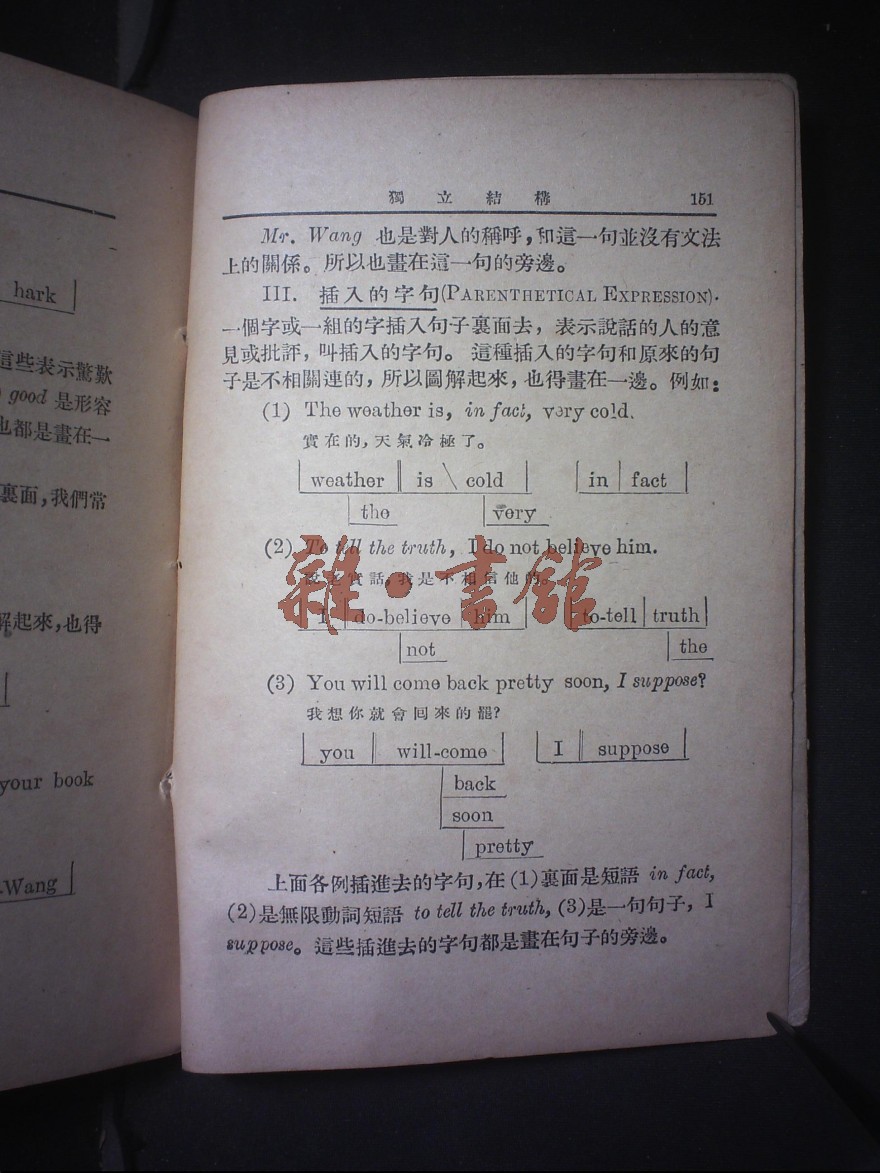 hark
這些表示驚歎
good 是形容
也都是畫在一
裏面，我們常
解起來，也得
your book
.Wang
獨立結構 151
Mr. Wang 也是對人的稱呼，和這一句並沒有文法
上的關係。所以也畫在這一句的旁邊。
III. 插入的字句(PARENTHETICAL EXPRESSION).
一個字或一組的字插入句子裏面去，表示說話的人的意
見或批評，叫插入的字句。這種插入的字句和原來的句
子是不相關連的，所以圖解起來，也得畫在一邊。例如：
(1) The weather is, in fact, very cold.
實在的，天氣冷極了。
weather is cold in fact
the very
(2) To tell the truth, I do not believe him.
說老實話，我是不相信他的。
雜·書館
I do-believe him to-tell truth
not the
(3) You will come back pretty soon, I suppose?
我想你就會回來的罷？
you will-come I suppose
back
soon
pretty
上面各例插進去的字句，在(1)裏面是短語 in fact,
(2)是無限動詞短語 to tell the truth, (3)是一句句子，I
suppose。這些插進去的字句都是畫在句子的旁邊。